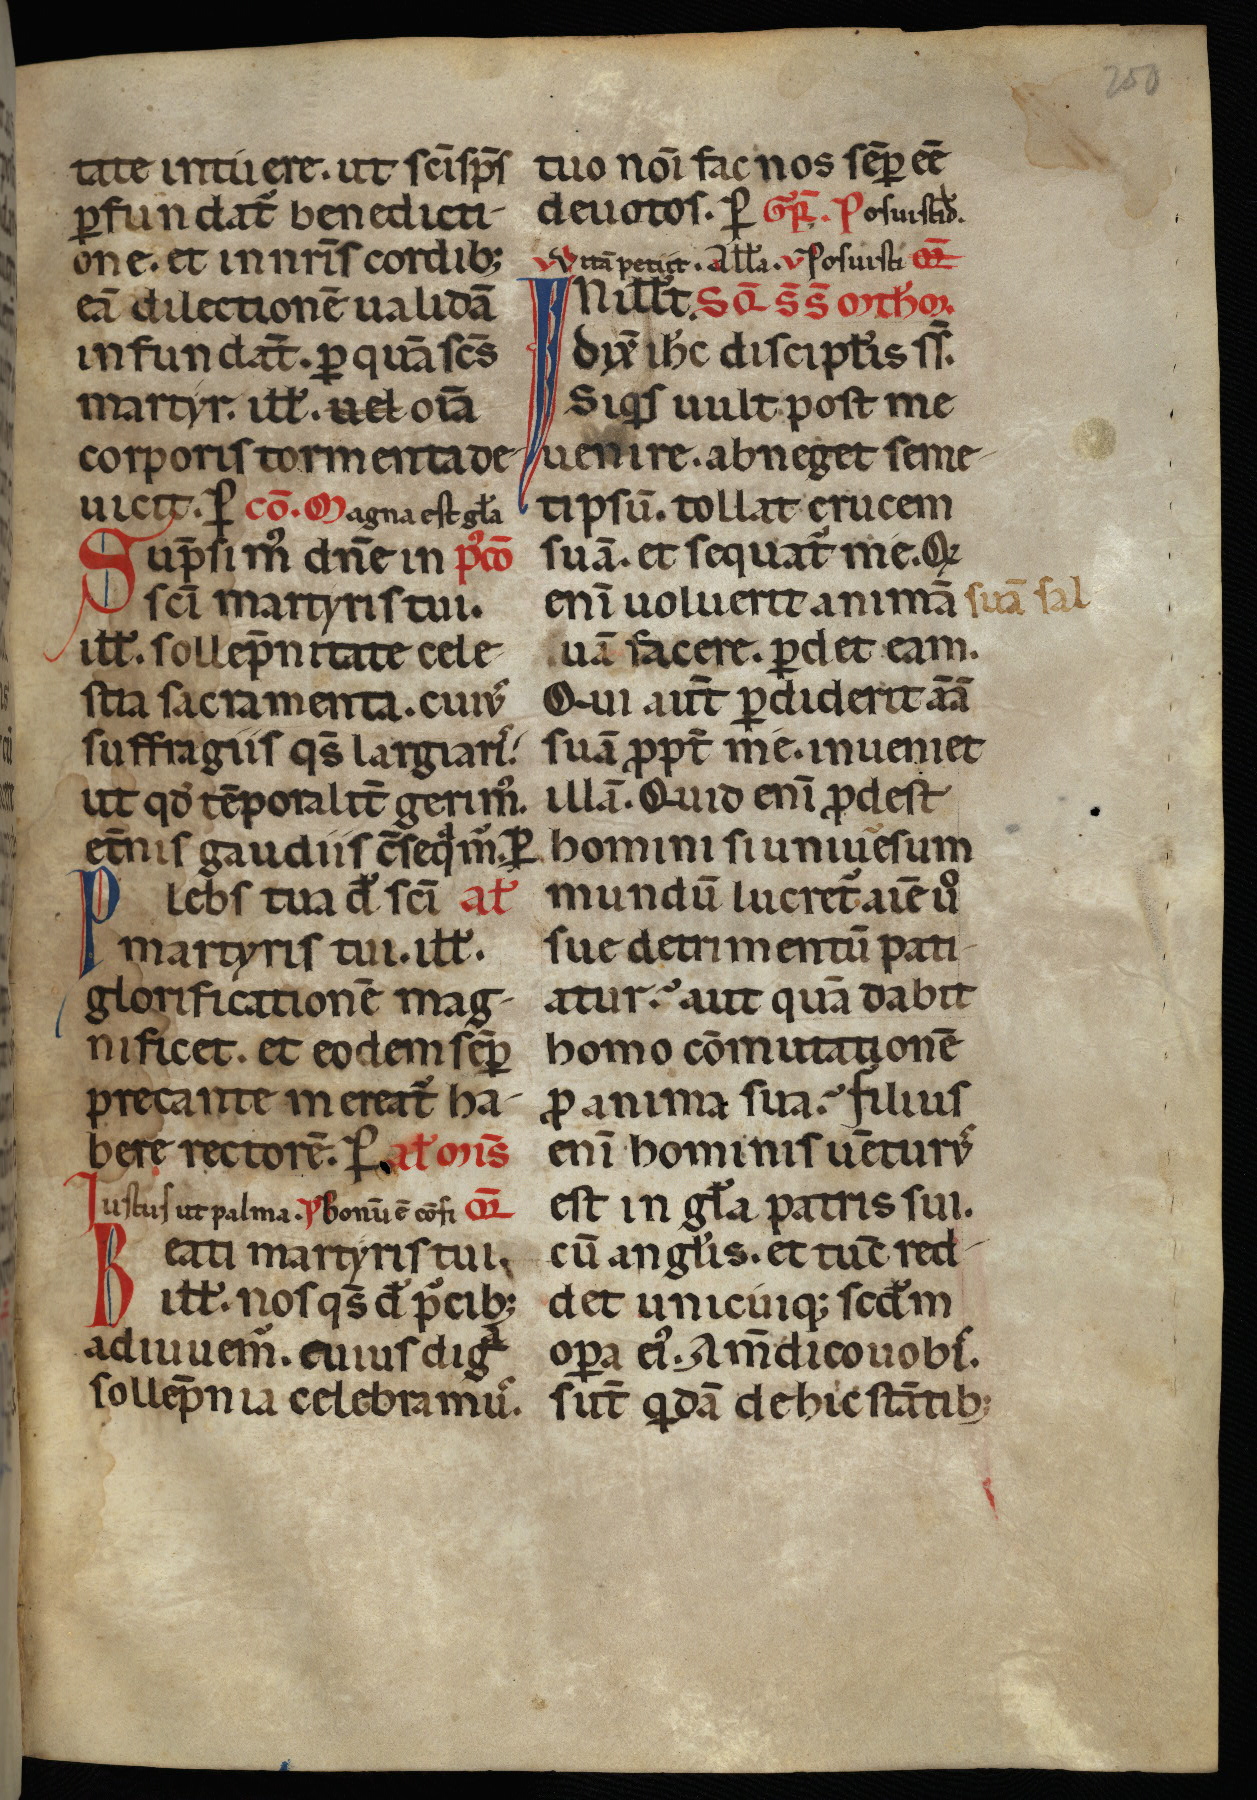 250
tate intuere. ut scı̄ sp̄s
ꝑfundat᷑ benedicti-
one. et in nr̄is cordib;
eā dilectionē ualidā
infundat̄. ꝑ quā sc̄s
martyr. ill̄. uel oīa
corporis tormenta de-
uicit. ꝑ cō. Magna est gl̄a
Sūpsim᷒ dn̄e in p᷒cō
sc̄i martyris tui.
ill̄. sollēpnitate cele
stia sacramenta. cuiꝰ
suffragiis qs̄ largiaris.
ut qd̄ tēporalit̄ gerimꝰ.
et̄nis gaudiis c̄seqͥm᷒. ꝑ
Plebs tua d̄s sc̄i al̄
martyris tui. ill̄.
glorificationē mag-
nificet. et eodem sēꝑ
precante mereat᷑ ha-
bere rectorē. ꝑ. al̄ om̄s
Iustus ut palma. P bonū ē cōfi or̄
Beati martyris tui.
ill̄. nos qs̄ d̄s p̄cib;
adiuuem᷒. cuius digͣ
sollēpnia celebramꝰ.
tuo noı̄ fac nos sēꝑ eē
deuotos. ꝑ Gr̄. Posuisti d̄.
V Vitā petiit. All̄a. v Posuisti or̄
IN ill̄ t. Sc̄d̄ s̄s̄ Math̄m.
dix̄ ih̄c discipul̄is ss̄.
Siqͥs uult post me
uenire. abneget seme-
tipsū. tollat crucem
suā. et sequat᷑ me. Qͥ
enī uoluerit animā suā sal
uā facere. ꝑdet eam.
Qui aut̄ ꝑdiderit āā
suā ꝓpt̄ me. inueniet
illā. Quid enī ꝓdest
homini si uniūesum
mundū lucret᷑ aīe ūo
sue detrimentū pati-
atur. aut quā dabit
homo cōmutationē
ꝓ anima sua. filius
enī hominis uēturꝰ
est in gl̄a patris sui.
cū angl̄is. et tūc red-
det unicuiq; scd̄m
oꝑa eiꝰ. Am̄ dico uobis.
sūt qͥdā de hic stātib;